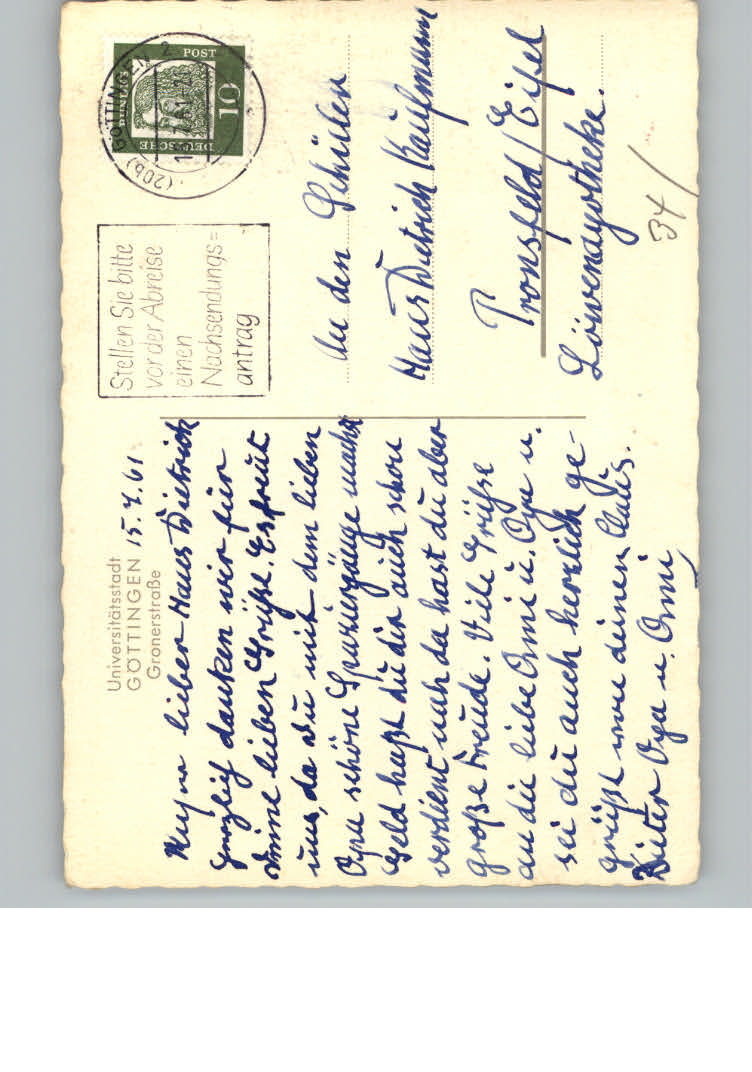 Universitätsstadt
GÖTTINGEN 15.7.61
Gronerstraße
Mein lieber Hans Dietrich
herzlich danken wir für
deine lieben Grüße. Es freut
uns, da du mit dem lieben
Opa schöne Spaziergänge machst
Geld hast du dir auch schon
verdient nah da hast du aber
große Freude. Viele Grüße
an die liebe Omi u. Opa u.
sei du auch herzlich ge-
grüßt von deinen Claus.
Dieter Opa u. Omi
(20b) GÖTTINGEN 2
DEUTSCHE
BUNDES
POST
10
Stellen Sie bitte
vor der Abreise
einen
Nachsendungs=
antrag
An den Schüler
Hans Dietrich Kaufmann
Pronsfeld/Eifel
Löwenapotheke.
34/